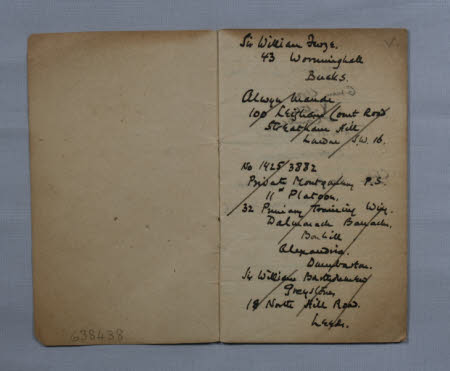 Sir William
43 Worminghall
Bucks.
Alwyn Maude
100 Leigham Court Road
Streatham Hill
London S.W. 16.
No 14253882
Private Montgomery P.S.
11th Platoon.
32 Primary Training Wing.
Dalymarach Barracks.
Bonhill
Alexandria.
Dumbarton.
Sir William
Greystones
18 North Hill Road.
Leeds.
638438